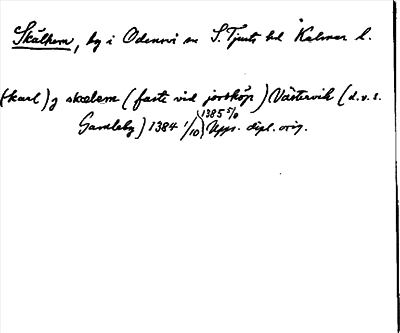 Skälhem, by i Odensvi sn S. Tjusts hd Kalmar l.
(karl) j skælem (faste vid jordköp) Västervik (d.v.s.
Gamleby) 1384 1/10) 1385 5/9 Upps. dipl. orig.